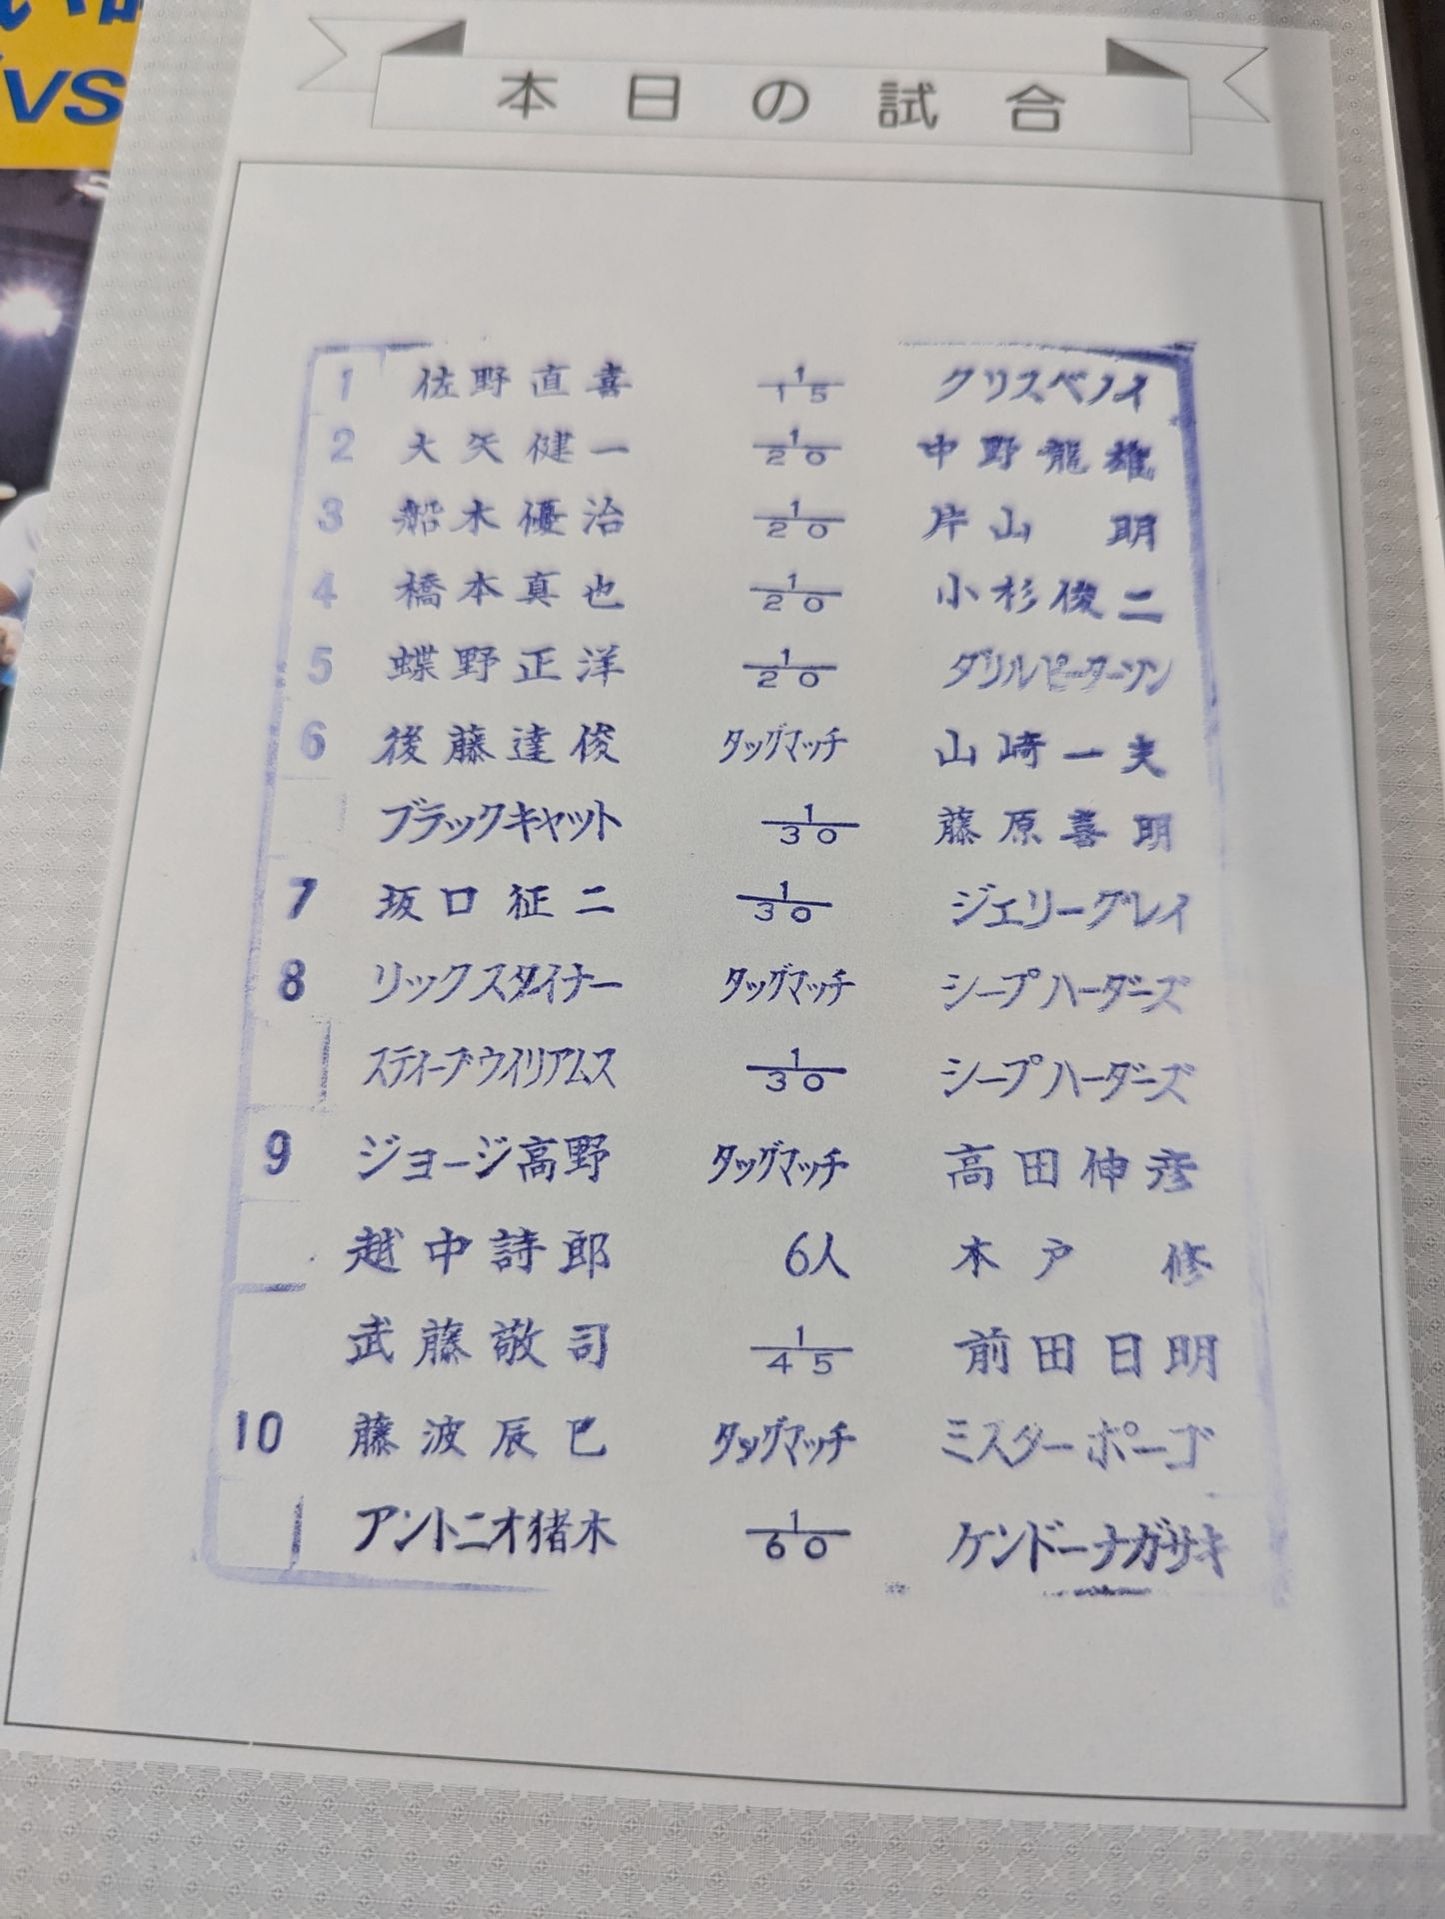 VS
本日の試合
1 佐野直喜 1/15 クリスベノイ
2 大矢健一 1/20 中野龍雄
3 船木優治 1/20 片山 明
4 橋本真也 1/20 小杉俊二
5 蝶野正洋 1/20 ダリルピーターソン
6 後藤達俊 タッグマッチ 山崎一夫
ブラックキャット 1/30 藤原喜明
7 坂口征二 1/30 ジェリーグレイ
8 リックスタイナー タッグマッチ シープハーダーズ
スティーブウイリアムス 1/30 シープハーダーズ
9 ジョージ高野 タッグマッチ 高田伸彦
越中詩郎 6人 木戸 修
武藤敬司 1/45 前田日明
10 藤波辰巳 タッグマッチ ミスターポーゴ
アントニオ猪木 1/60 ケンドーナガサキ